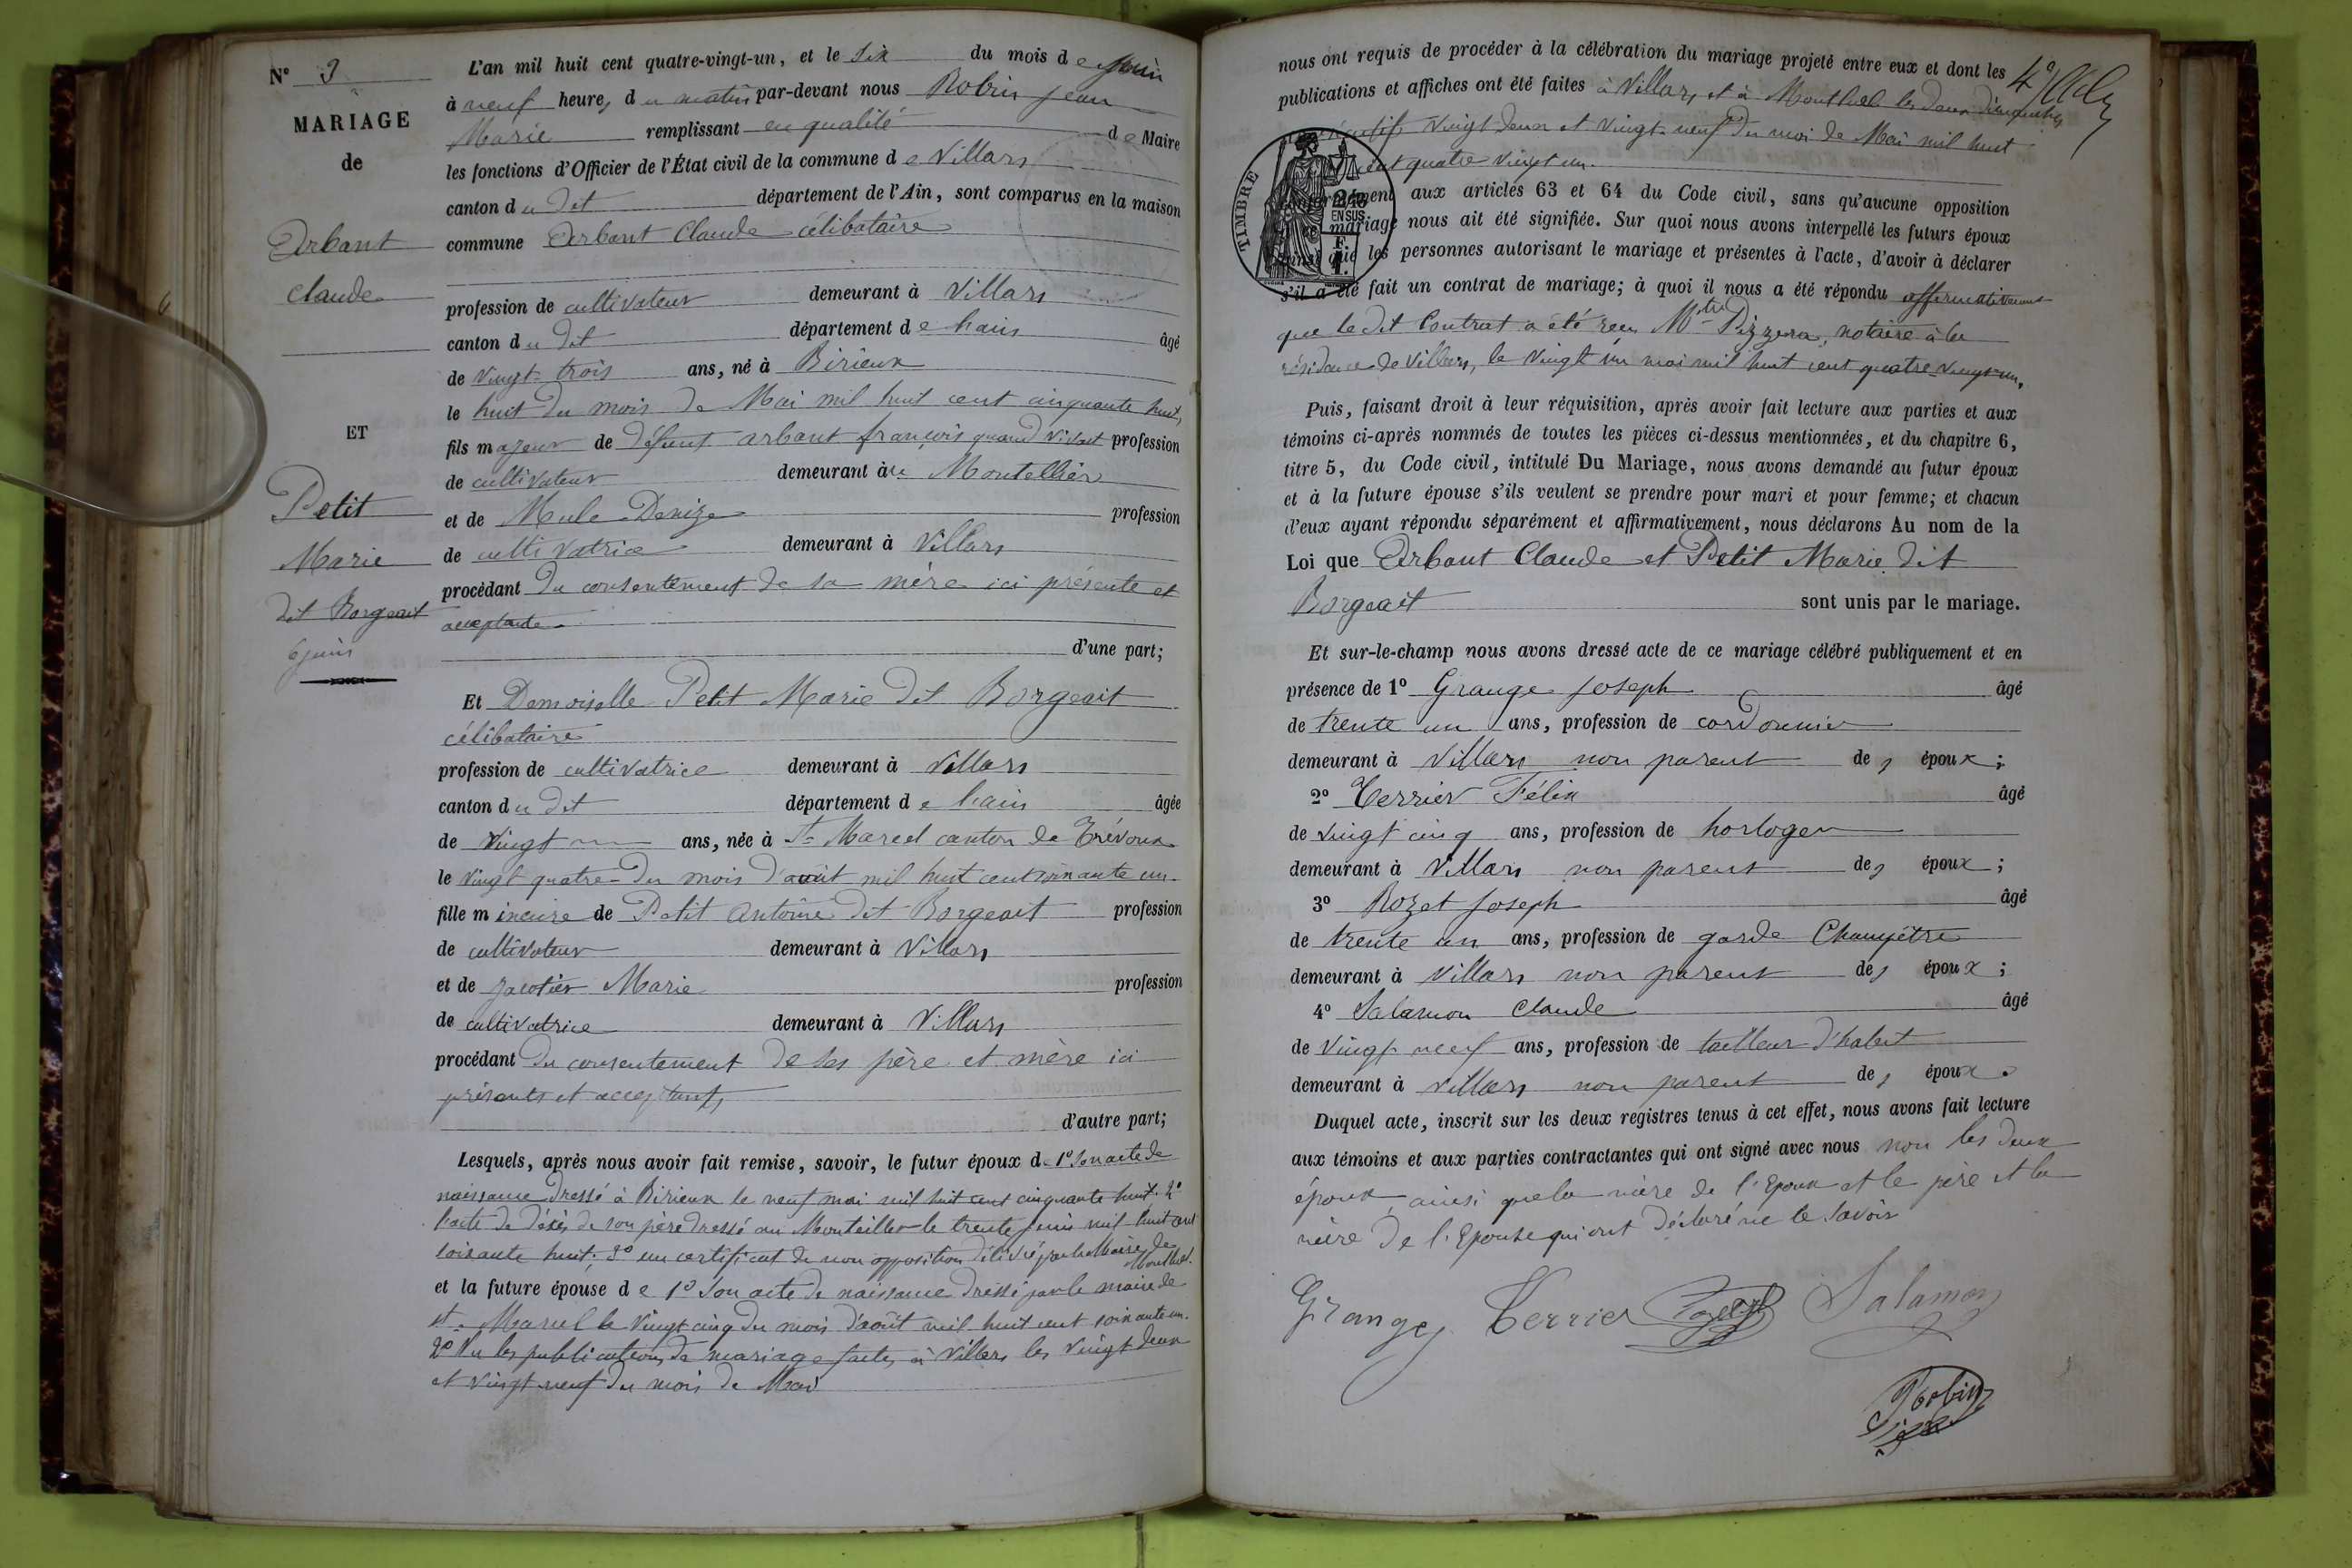 N° 3
MARIAGE
de
Arbant
Claude
ET
Petit
Marie
dit Borgeait
6 juin
L'an mil huit cent quatre-vingt-un, et le six du mois de juin
à neuf heures du matin par-devant nous Robin Jean
Marie remplissant en qualité de Maire
les fonctions d'Officier de l'État civil de la commune de Villars
canton du dit département de l'Ain, sont comparus en la maison
commune Arbant Claude célibataire
profession de cultivateur demeurant à Villars
canton du dit département de l'ain âgé
de vingt trois ans, né à Birieux
le huit du mois de Mai mil huit cent cinquante huit,
fils majeur de défunt arbant françois quand vivait profession
de cultivateur demeurant au Montellier
et de Mule Denize profession
de cultivatrice demeurant à Villars
procédant du consentement de sa mère ici présente et
acceptante
d'une part;
Et Demoiselle Petit Marie dit Borgeait
célibataire
profession de cultivatrice demeurant à Villars
canton du dit département de l'ain âgée
de vingt ans, née à St Marcel canton de Trévoux
le vingt quatre du mois d'août mil huit cent soixante un
fille mineure de Petit Antoine dit Borgeait profession
de cultivateur demeurant à Villars
et de Jacotier Marie profession
de cultivatrice demeurant à Villars
procédant du consentement de ses père et mère ici
présents et acceptants
d'autre part;
Lesquels, après nous avoir fait remise, savoir, le futur époux de 1° son acte de
naissance dressé à Birieux le neuf mai mil huit cent cinquante huit. 2°
l'acte de décès de son père dressé au Montellier le trente juin mil huit cent
soixante huit. 3° un certificat de non opposition délivré par le Maire de
et la future épouse de 1° son acte de naissance dressé par le maire de
st. Marcel le vingt cinq du mois d'août mil huit cent soixante un.
2° Vu les publications de mariage faites à Villars les vingt deux
et vingt neuf du mois de Mai
nous ont requis de procéder à la célébration du mariage projeté entre eux et dont les
publications et affiches ont été faites à Villars et à les deux dimanches
vingt deux et vingt-neuf du mois de Mai mil huit
cent quatre vingt un.
TIMBRE
2/10
EN SUS
F.
conformément aux articles 63 et 64 du Code civil, sans qu'aucune opposition
mariage nous ait été signifiée. Sur quoi nous avons interpellé les futurs époux
ainsi que les personnes autorisant le mariage et présentes à l'acte, d'avoir à déclarer
s'il a été fait un contrat de mariage; à quoi il nous a été répondu affirmativement
que le dit Contrat a été reçu Mtre Pizzera, notaire à la
résidence de Villars, le vingt un mai mil huit cent quatre vingt-un.
Puis, faisant droit à leur réquisition, après avoir fait lecture aux parties et aux
témoins ci-après nommés de toutes les pièces ci-dessus mentionnées, et du chapitre 6,
titre 5, du Code civil, intitulé Du Mariage, nous avons demandé au futur époux
et à la future épouse s'ils veulent se prendre pour mari et pour femme; et chacun
d'eux ayant répondu séparément et affirmativement, nous déclarons Au nom de la
Loi que Arbant Claude et Petit Marie dit
Borgeait sont unis par le mariage.
Et sur-le-champ nous avons dressé acte de ce mariage célébré publiquement et en
présence de 1° Grange Joseph âgé
de trente un ans, profession de cordonnier
demeurant à Villars non parent des époux;
2° Terrier Félix âgé
de vingt cinq ans, profession de horloger
demeurant à Villars non parent des époux;
3° Rozet Joseph âgé
de trente un ans, profession de garde Champêtre
demeurant à Villars non parent des époux;
4° Salamon Claude âgé
de vingt neuf ans, profession de tailleur d'habit
demeurant à Villars non parent des époux.
Duquel acte, inscrit sur les deux registres tenus à cet effet, nous avons fait lecture
aux témoins et aux parties contractantes qui ont signé avec nous non les deux
époux, ainsi que la mère de l'Epoux et le père et la
mère de l'Epouse qui ont déclaré ne le savoir
Grange Terrier Rozet Salamon
Robin